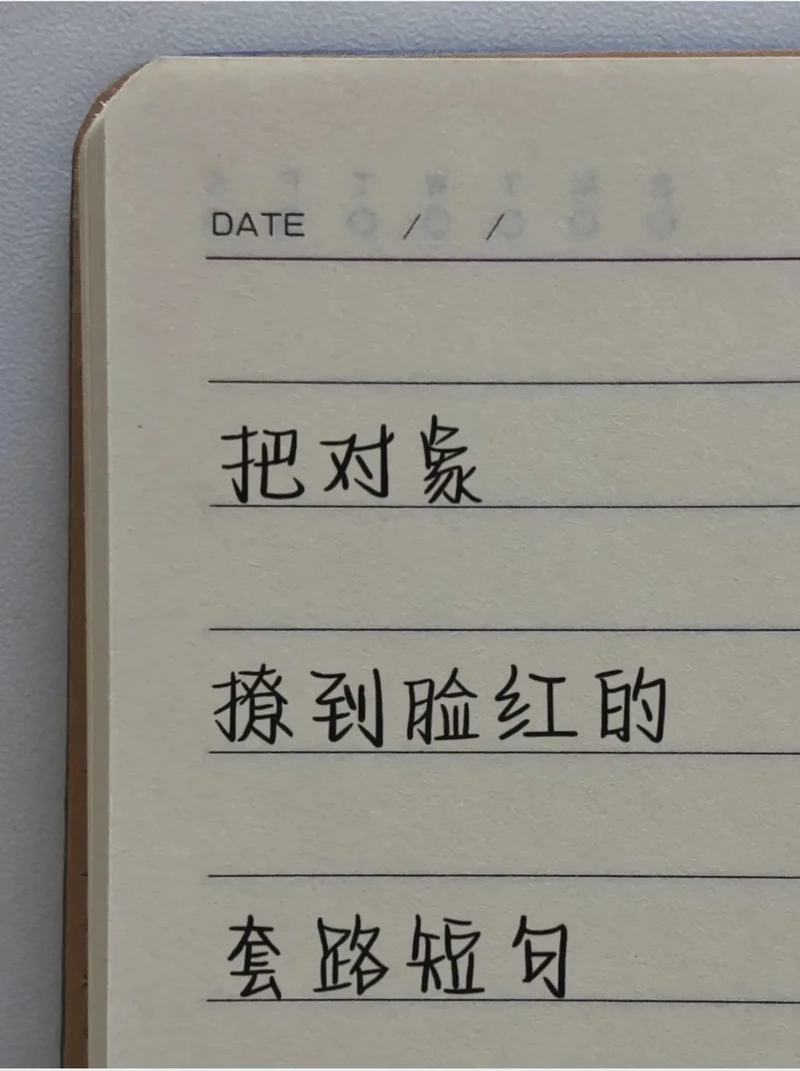 DATE / /
把对象
撩到脸红的
套路短句